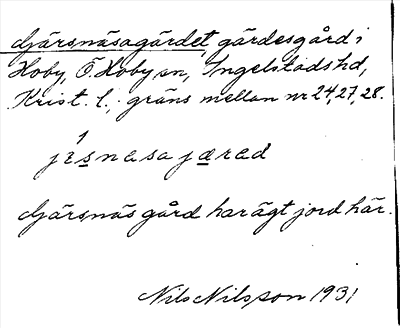 Gärsnäsagärdet, gärdesgård i
Hoby, Ö Hoby sn, Ingelstads hd,
Krist. l., gräns mellan nr 24, 27, 28.
jɛsnasajærad
Gärsnäs gård har ägt jord här.
Nils Nilsson 1931